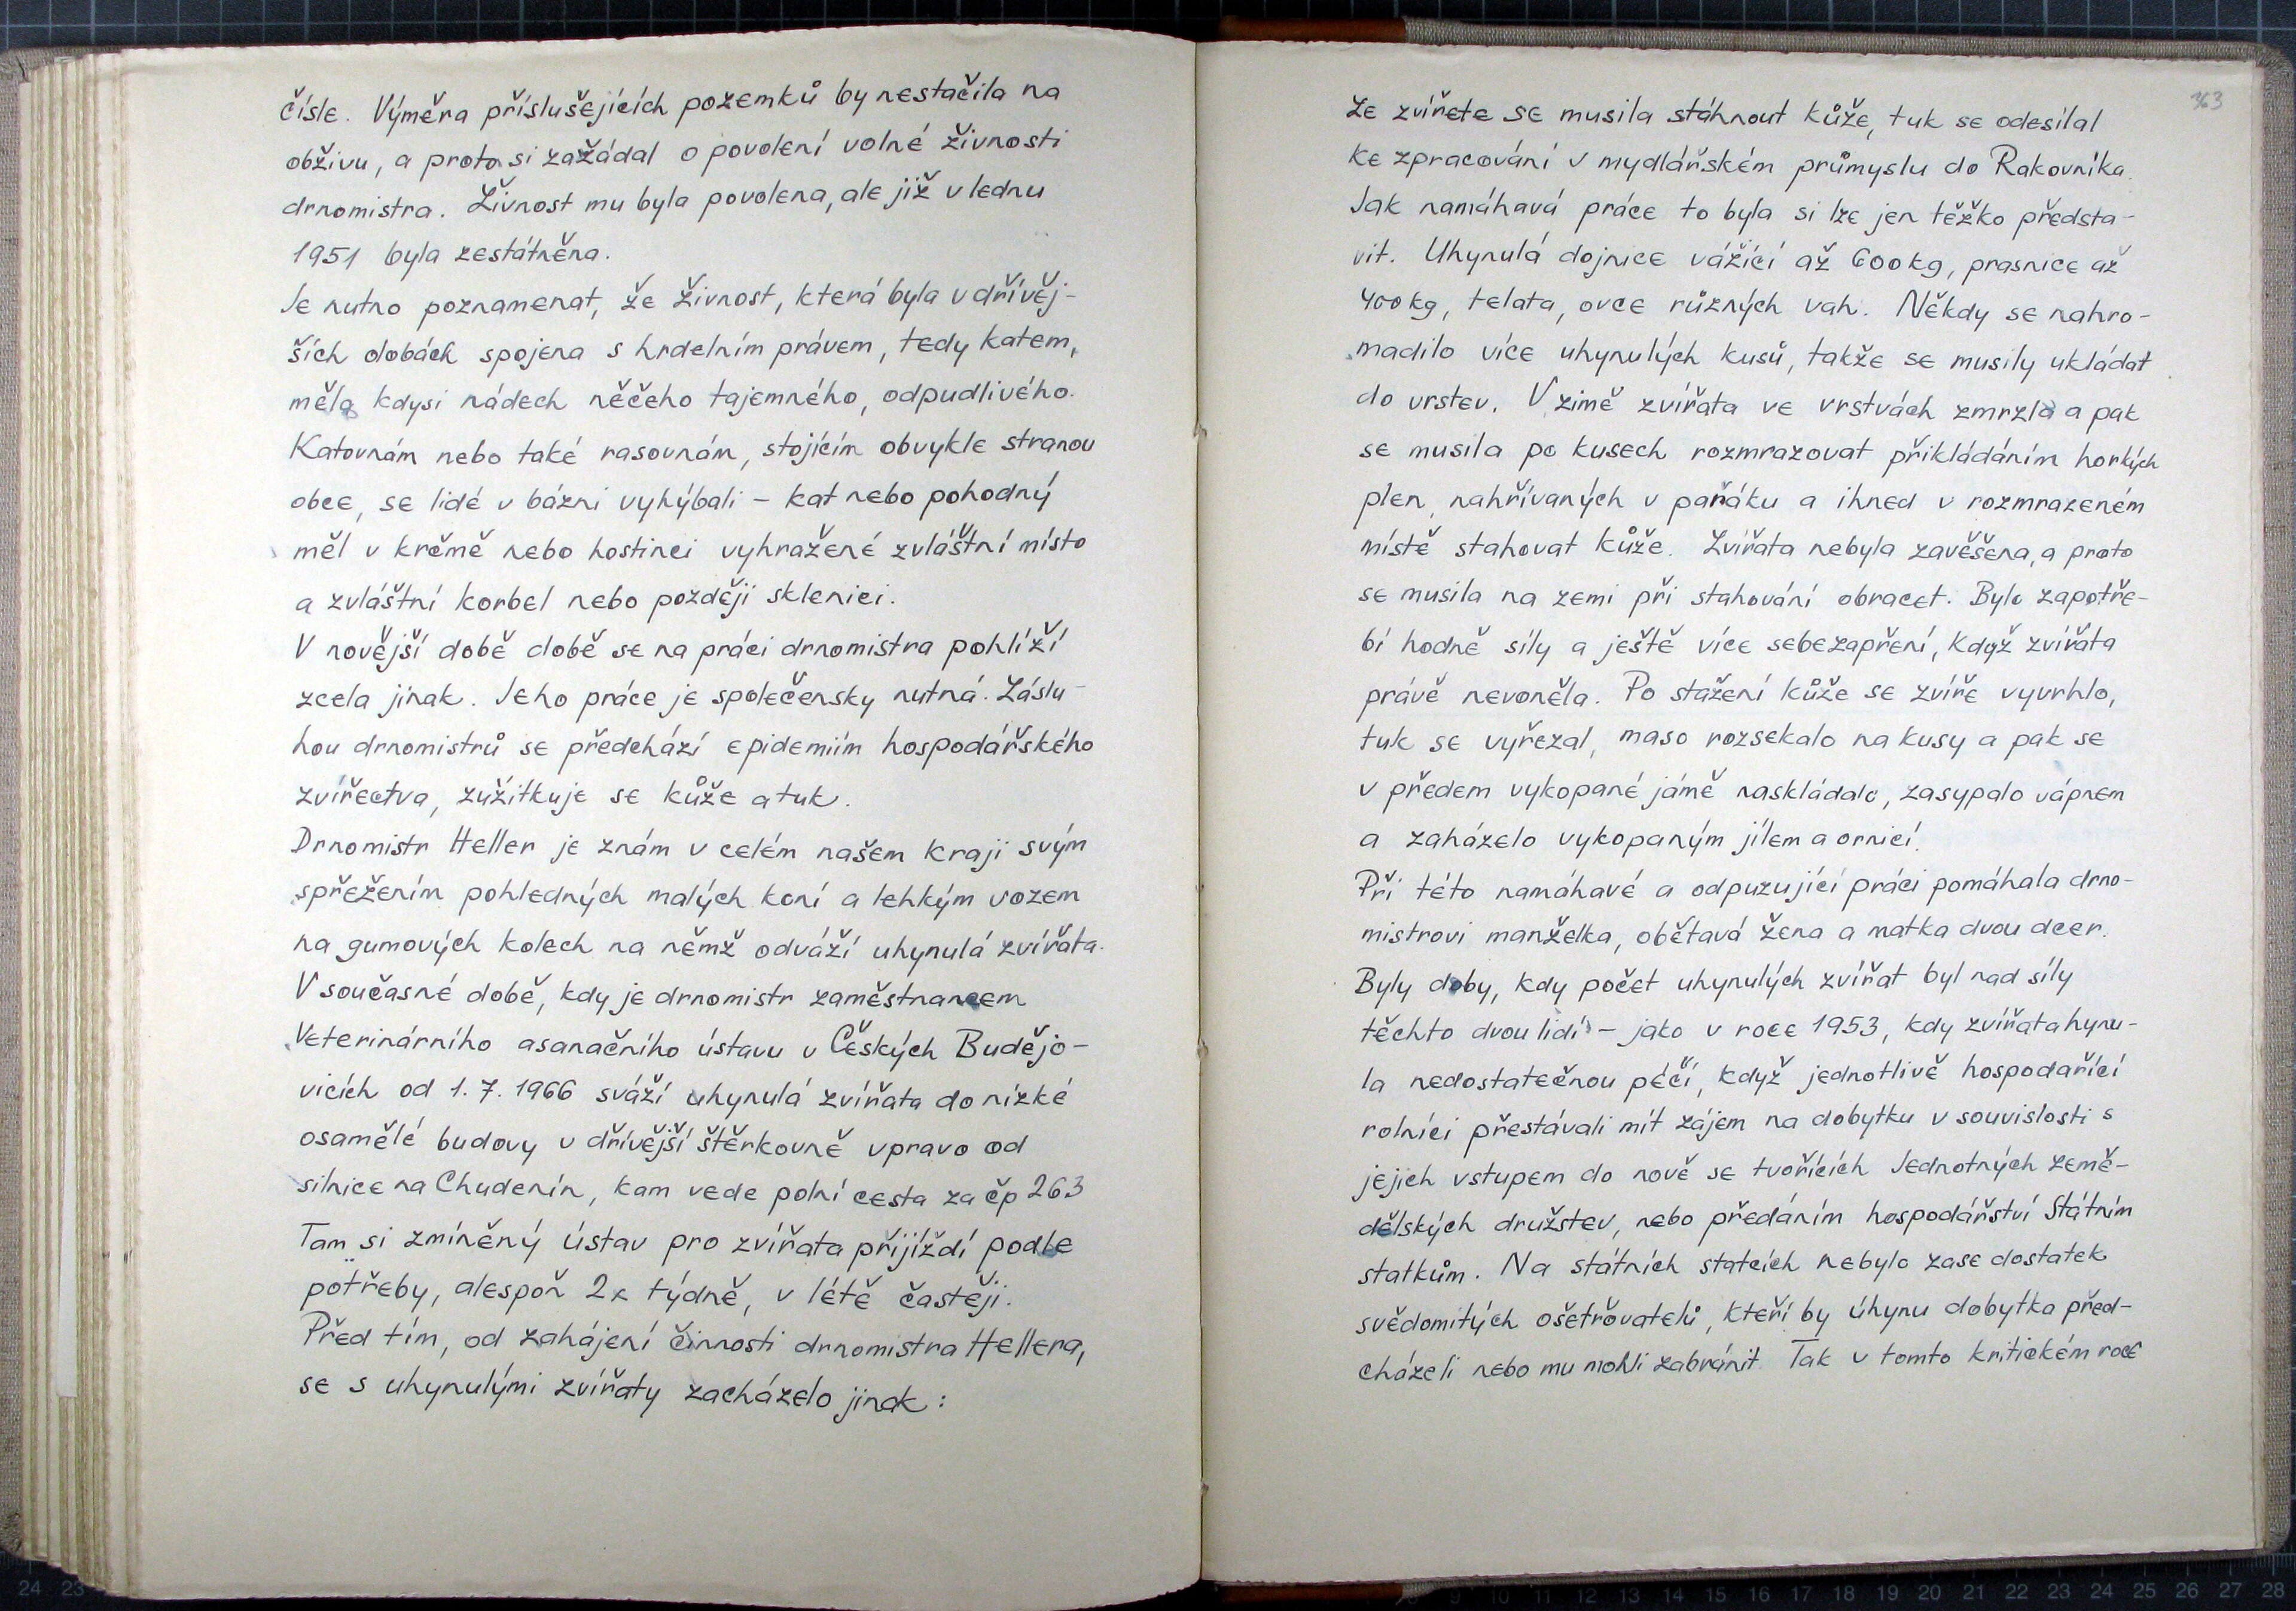 čísle. Výměra příslušejících pozemků by nestačila na
obživu, a proto si zažádal o povolení volné živnosti
drnomistra. Živnost mu byla povolena, ale již v lednu
1951 byla zestátněna.
Je nutno poznamenat, že živnost, která byla v dřívěj-
ších dobách spojena s hrdelním právem, tedy katem,
měla kdysi nádech něčeho tajemného, odpudlivého.
Katovnám nebo také rasovnám, stojícím obvykle stranou
obce, se lidé v bázni vyhýbali - kat nebo pohodný
měl v krčmě nebo hostinci vyhražené zvláštní místo
a zvláštní korbel nebo později sklenici.
V novější době době se na práci drnomistra pohlíží
zcela jinak. Jeho práce je společensky nutná. Záslu-
hou drnomistrů se předchází epidemiím hospodářského
zvířectva, zužitkuje se kůže a tuk.
Drnomistr Heller je znám v celém našem kraji svým
spřežením pohledných malých koní a lehkým vozem
na gumových kolech na němž odváží uhynulá zvířata.
V současné době, kdy je drnomistr zaměstnancem
Veterinárního asanačního ústavu v Českých Budějo-
vicích od 1.7.1966 sváží uhynulá zvířata do nízké
osamělé budovy v dřívější štěrkovně vpravo od
silnice na Chudenín, kam vede polní cesta za čp 263
Tam si zmíněný ústav pro zvířata přijíždí podle
potřeby, alespoň 2x týdně, v létě častěji.
Před tím, od zahájení činnosti drnomistra Hellera,
se s uhynulými zvířaty zacházelo jinak:
363
Ze zvířete se musila stáhnout kůže, tuk se odesílal
ke zpracování v mydlářském průmyslu do Rakovníka.
Jak namáhavá práce to byla si lze jen těžko předsta-
vit. Uhynulá dojnice vážící až 600kg, prasnice až
400kg, telata, ovce různých vah. Někdy se nahro-
madilo více uhynulých kusů, takže se musily ukládat
do vrstev. V zimě zvířata ve vrstvách zmrzla a pak
se musila po kusech rozmrazovat přikládáním horkých
plen, nahřívaných v pařáku a ihned v rozmrazeném
místě stahovat kůže. Zvířata nebyla zavěšena, a proto
se musila na zemi při stahování obracet. Bylo zapotře-
bí hodně síly a ještě více sebezapření, když zvířata
právě nevoněla. Po stažení kůže se zvíře vyvrhlo,
tuk se vyřezal, maso rozsekalo na kusy a pak se
v předem vykopané jámě naskládalo, zasypalo vápnem
a zaházelo vykopaným jílem a ornicí.
Při této namáhavé a odpuzující práci pomáhala drno-
mistrovi manželka, obětavá žena a matka dvou dcer.
Byly doby, kdy počet uhynulých zvířat byl nad síly
těchto dvou lidí - jako v roce 1953, kdy zvířata hynu-
la nedostatečnou péčí, když jednotlivě hospodařící
rolníci přestávali mít zájem na dobytku v souvislosti s
jejich vstupem do nově se tvořících Jednotných země-
dělských družstev, nebo předáním hospodářství Státním
statkům. Na státních statcích nebylo zase dostatek
svědomitých ošetřovatelů, kteří by úhynu dobytka před-
cházeli nebo mu mohli zabránit. Tak v tomto kritickém roce
24 23
8 9 10 11 12 13 14 15 16 17 18 19 20 21 22 23 24 25 26 27 28